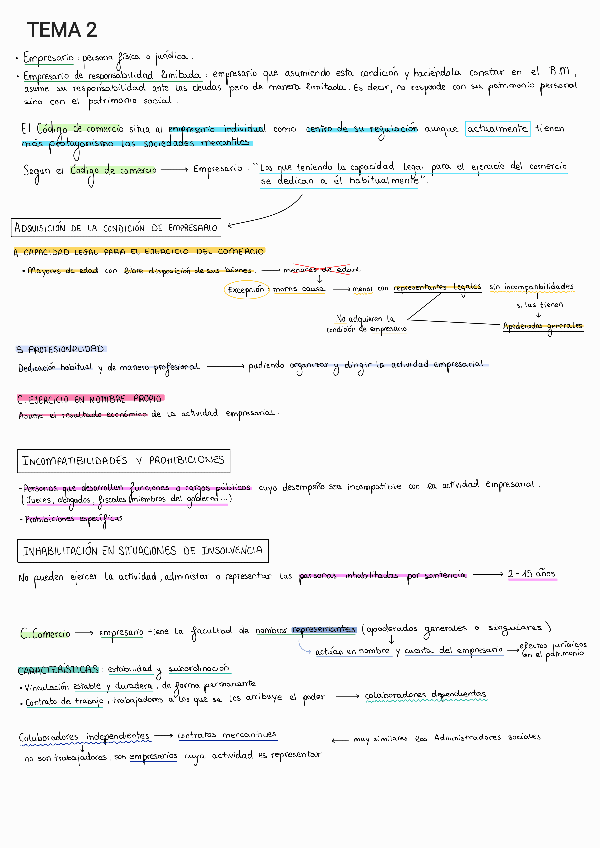 TEMA 2
• Empresario: persona física o jurídica.
• Empresario de responsabilidad limitada: empresario que asumiendo esta condición y haciéndola constar en el R.M.,
asume su responsabilidad ante las deudas pero de manera limitada. Es decir, no responde con su patrimonio personal
sino con el patrimonio social.
El Código de comercio situa al empresario individual como centro de su regulación aunque actualmente tienen
más protagonismo las sociedades mercantiles
Según el Código de comercio → Empresario: "Los que teniendo la capacidad legal para el ejercicio del comercio
se dedican a él habitualmente".
ADQUISICIÓN DE LA CONDICIÓN DE EMPRESARIO
A. CAPACIDAD LEGAL PARA EL EJERCICIO DEL COMERCIO
• Mayores de edad con libre disposición de sus bienes. → menores de edad.
Excepción: mortis causa → menor con representantes legales sin incompatibilidades
si las tienen
No adquieren la
condición de empresario
Apoderados generales
B. PROFESIONALIDAD
Dedicación habitual y de manera profesional → pudiendo organizar y dirigir la actividad empresarial.
C. EJERCICIO EN NOMBRE PROPIO
Asume el resultado económico de la actividad empresarial.
INCOMPATIBILIDADES Y PROHIBICIONES
- Personas que desarrollen funciones o cargos públicos cuyo desempeño sea incompatible con la actividad empresarial.
(Jueces, abogados, fiscales, miembros del gobierno...)
- Prohibiciones específicas
INHABILITACIÓN EN SITUACIONES DE INSOLVENCIA
No pueden ejercer la actividad, administrar o representar las personas inhabilitadas por sentencia → 2-15 años
C.Comercio → empresario tiene la facultad de nombrar representantes (apoderados generales o singulares)
actúan en nombre y cuenta del empresario → efectos jurídicos
en el patrimonio
CARACTERÍSTICAS estabilidad y subordinación
• Vinculación estable y duradera, de forma permanente
• Contrato de trabajo, trabajadores a los que se les atribuye el poder → colaboradores dependientes
Colaboradores independientes → contratos mercantiles ← muy similares los Administradores sociales
no son trabajadores son empresarios cuya actividad es representar